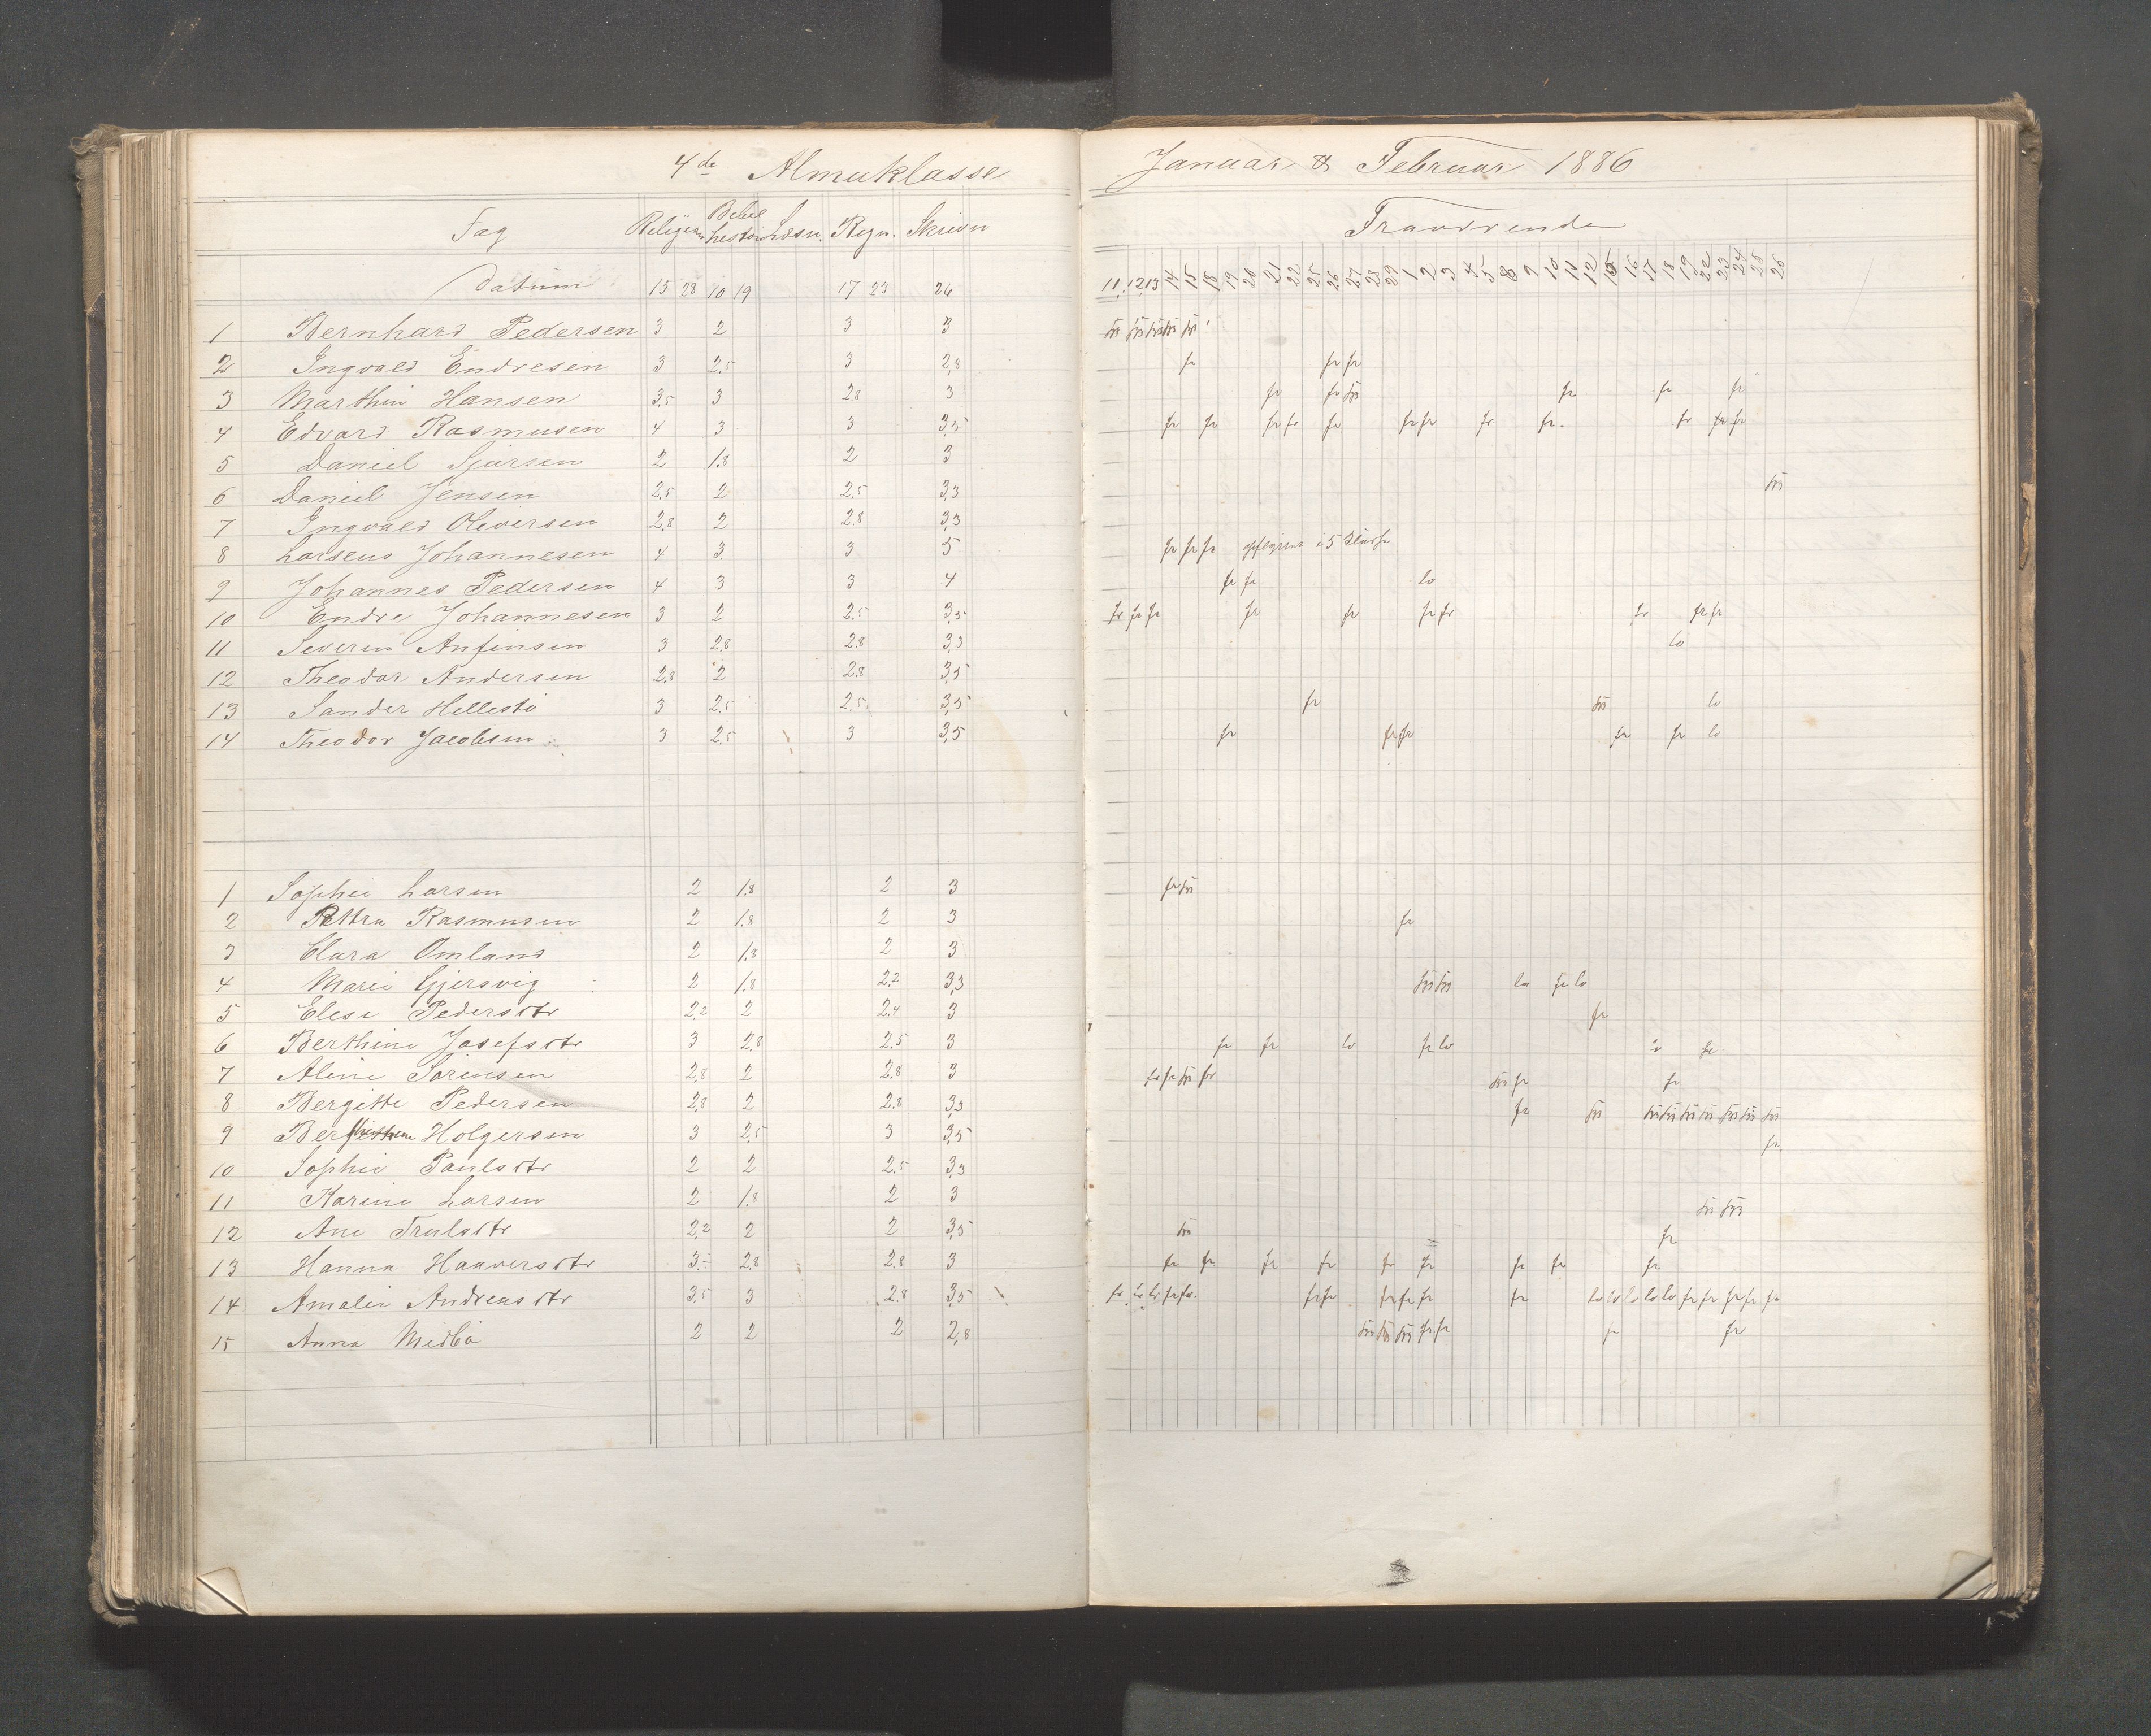 4de Almuklasse
Fag Religion Bibelhistorie Læsn. Regn. Skrivn
Datum 15 28 10 19 17 23 26
1 Bernhard Pedersen 3 2 3 3
2 Ingvald Endresen 3 2,5 3 2,8
3 Marthin Hansen 3,5 3 2,8 3
4 Edvard Rasmusen 4 3 3 3,5
5 Daniel Sjursen 2 1,8 2 3
6 Daniel Jensen 2,5 2 2,5 3,3
7 Ingvald Oliversen 2,8 2 2,8 3,3
8 Larseus Johannesen 4 3 3 5
9 Johannes Pedersen 4 3 3 4
10 Endre Johannesen 3 2 2,5 3,5
11 Severin Anfinsen 3 2,8 2,8 3,3
12 Theodor Andersen 2,8 2 2,8 3,5
13 Sander Hellestö 3 2,5 2,5 3,5
14 Theodor Jacobsen 3 2,5 3 3,5
1 Sophie Larsen 2 1,8 2 3
2 Pettra Rasmusen 2 1,8 2 3
3 Clara Omland 2 1,8 2 3
4 Marie Gjersvig 2 1,8 2,2 3,3
5 Elese Pedersdtr 2,2 2 2,4 3
6 Berthine Josefsdtr 3 2,8 2,5 3
7 Aline Sørensen 2,8 2 2,8 3
8 Bergitte Pedersen 2,8 2 2,8 3,3
9 Holgersen 3 2,5 3 3,5
10 Sophie Paulsdtr 2 2 2,5 3,3
11 Karine Larsen 2 1,8 2 3
12 Ane Trulsdtr 2,2 2 2 3,5
13 Hanna Haaversdtr 3,5 2,8 2,8 3
14 Amalie Andreasdtr 3,5 3 2,8 3,5
15 Anna Midbö 2 2 2 2,8
Januar & Februar 1886
Fraværende
11 12 13 14 15 18 19 20 21 22 25 26 27 28 29 1 2 3 4 5 8 9 10 11 12 15 16 17 18 19 22 23 24 25 26
fr fr fr
fr fr fr fr
fr fr fr fr fr fr fr fr fr. fr fr fr
fr fr fr i 5 Klasse
fr fr lo
fr fr fr fr fr fr fr fr fr fr
lo
fr lo
fr fr fr fr fr lo
fr
fr
lo fr lo
fr
fr fr lo fr lo
fr
fr
fr
fr
fr fr fr fr fr fr fr fr fr
fr lo lo fr fr fr fr fr fr fr fr lo lo lo lo lo fr fr fr fr fr
fr fr fr fr